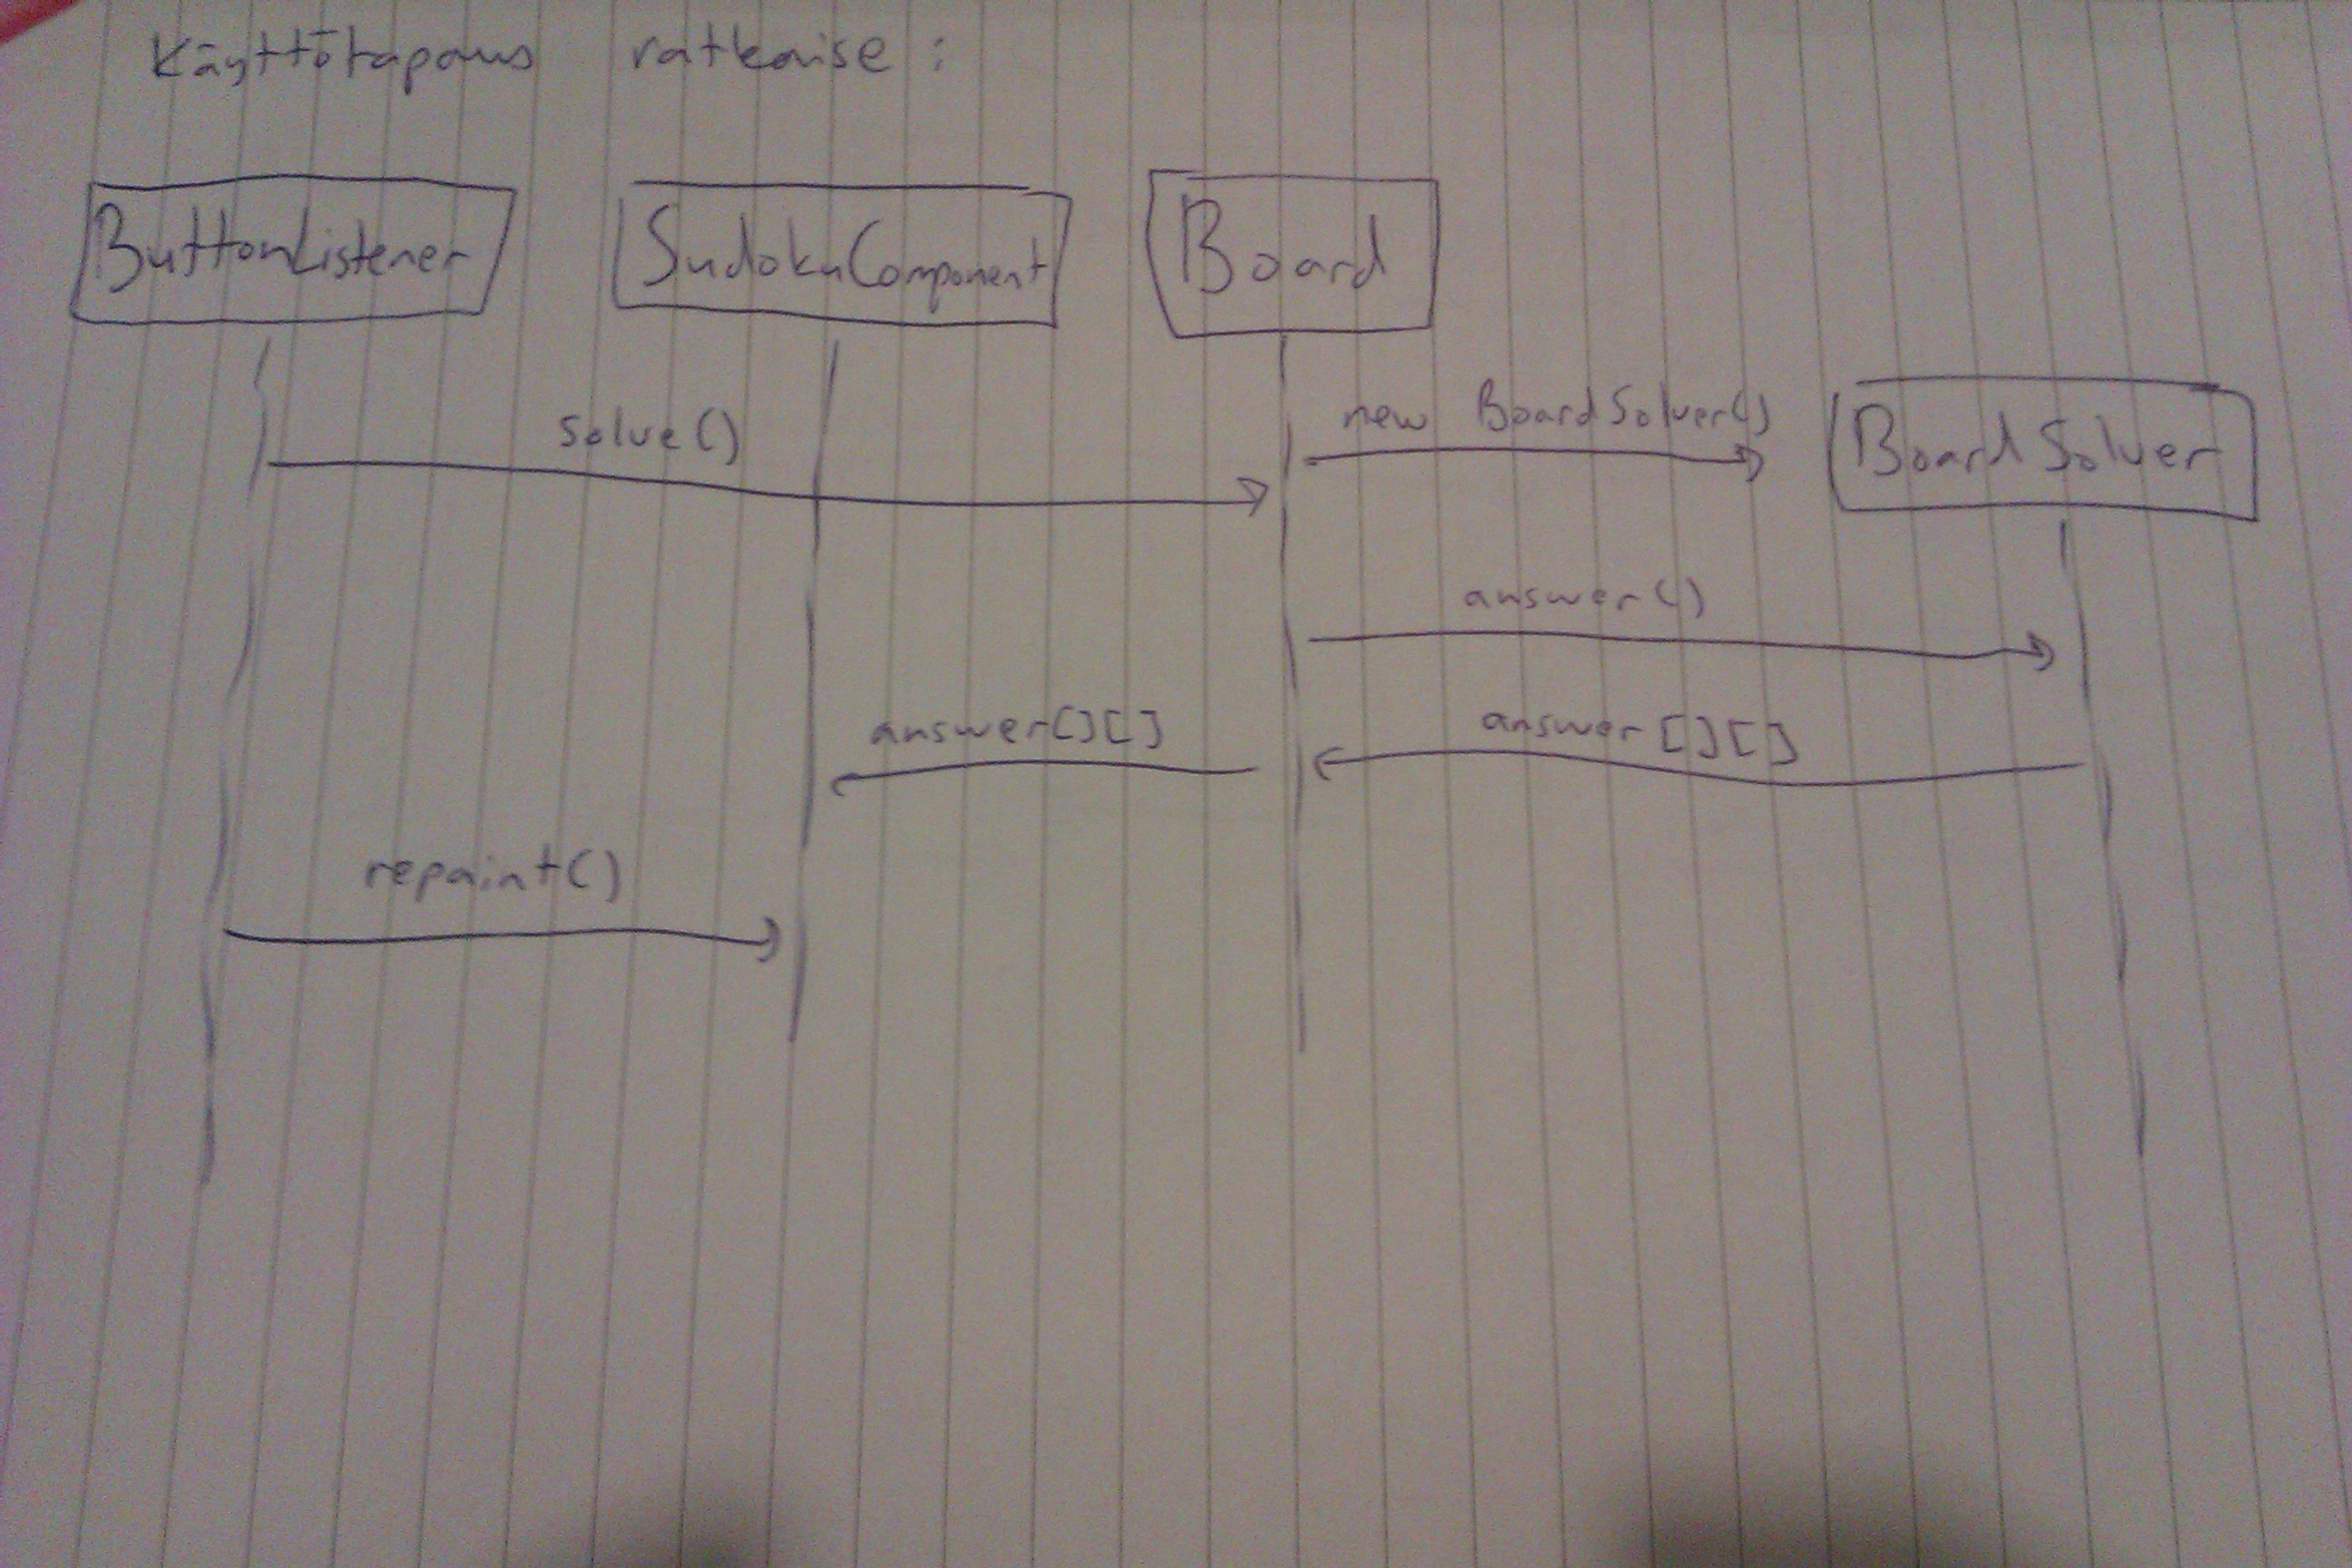 Käyttötapaus ratkaise:
ButtonListener
SudokuComponent
Board
solve()
new BoardSolver()
BoardSolver
answer()
answer[][]
answer[][]
repaint()